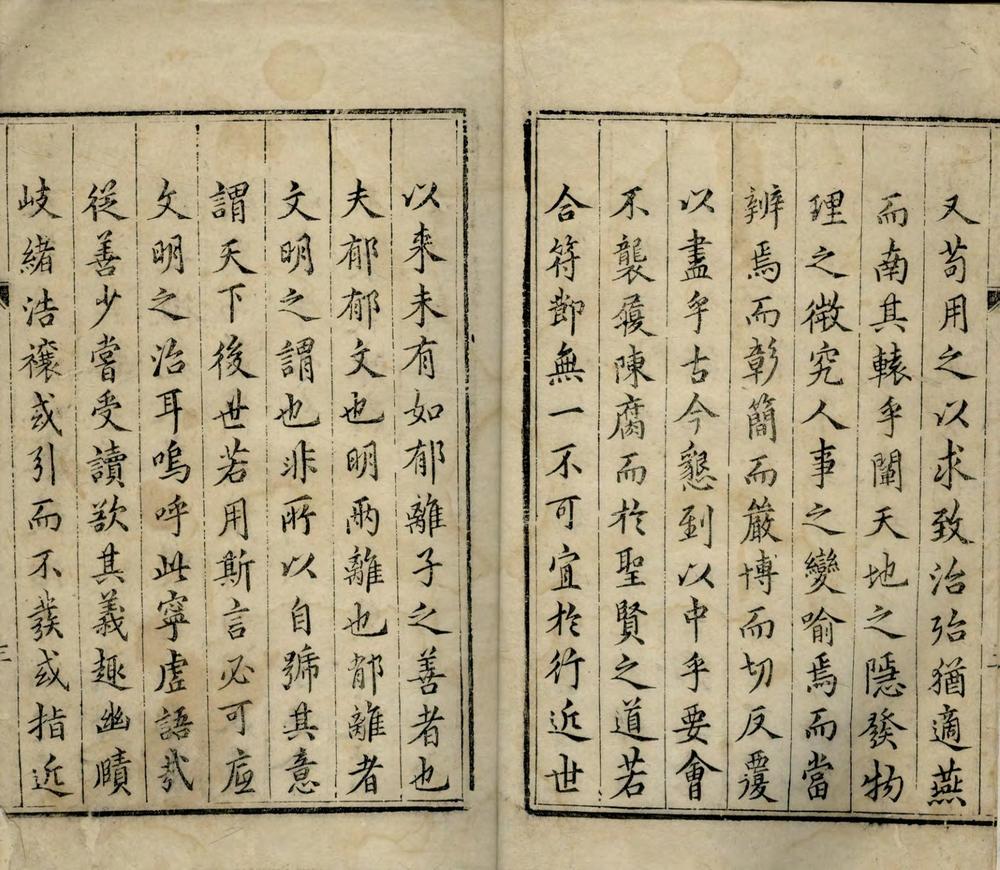 又苟用之以求致治殆猶適燕
而南其轅乎闡天地之隱發物
理之微究人事之變喻焉而當
辨焉而彰簡而嚴博而切反覆
以盡乎古今懇到以中乎要會
不襲履陳腐而於聖賢之道若
合符節無一不可宜於行近世
以來未有如郁離子之善者也
夫郁郁文也明兩離也郁離者
文明之謂也非所以自號其意
謂天下後世若用斯言必可底
文明之治耳嗚呼此寧虛語哉
從善少嘗受讀歎其義趣幽賾
岐緒浩穰或引而不發或指近
二
三